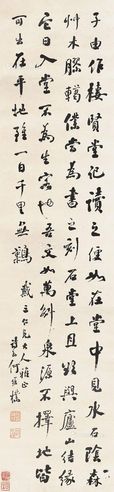 子由作棲賢堂記讀之便如在堂中見水石陰森
艸木膠轕僕當為書之刻石堂上且欲與廬山結緣
它日入堂不為生客也吾文如萬斛泉源不擇地皆
可出在平地雖一日千里無難
仁兄大人雅正
詩孫何維樸